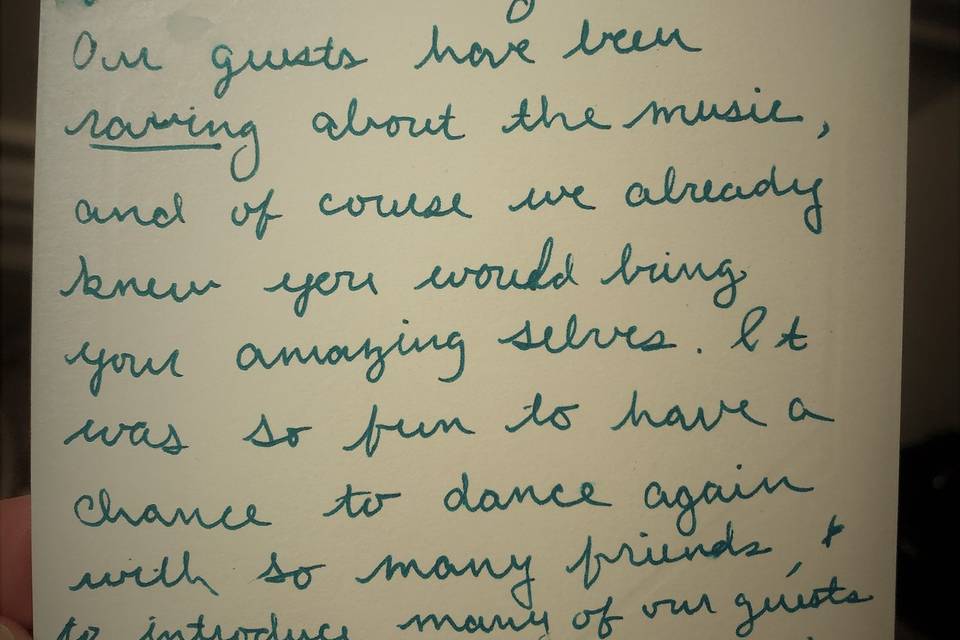 Our guests have been
raving about the music,
and of course we already
knew you would bring
your amazing selves. It
was so fun to have a
chance to dance again
with so many friends, &
to introduce many of our guests